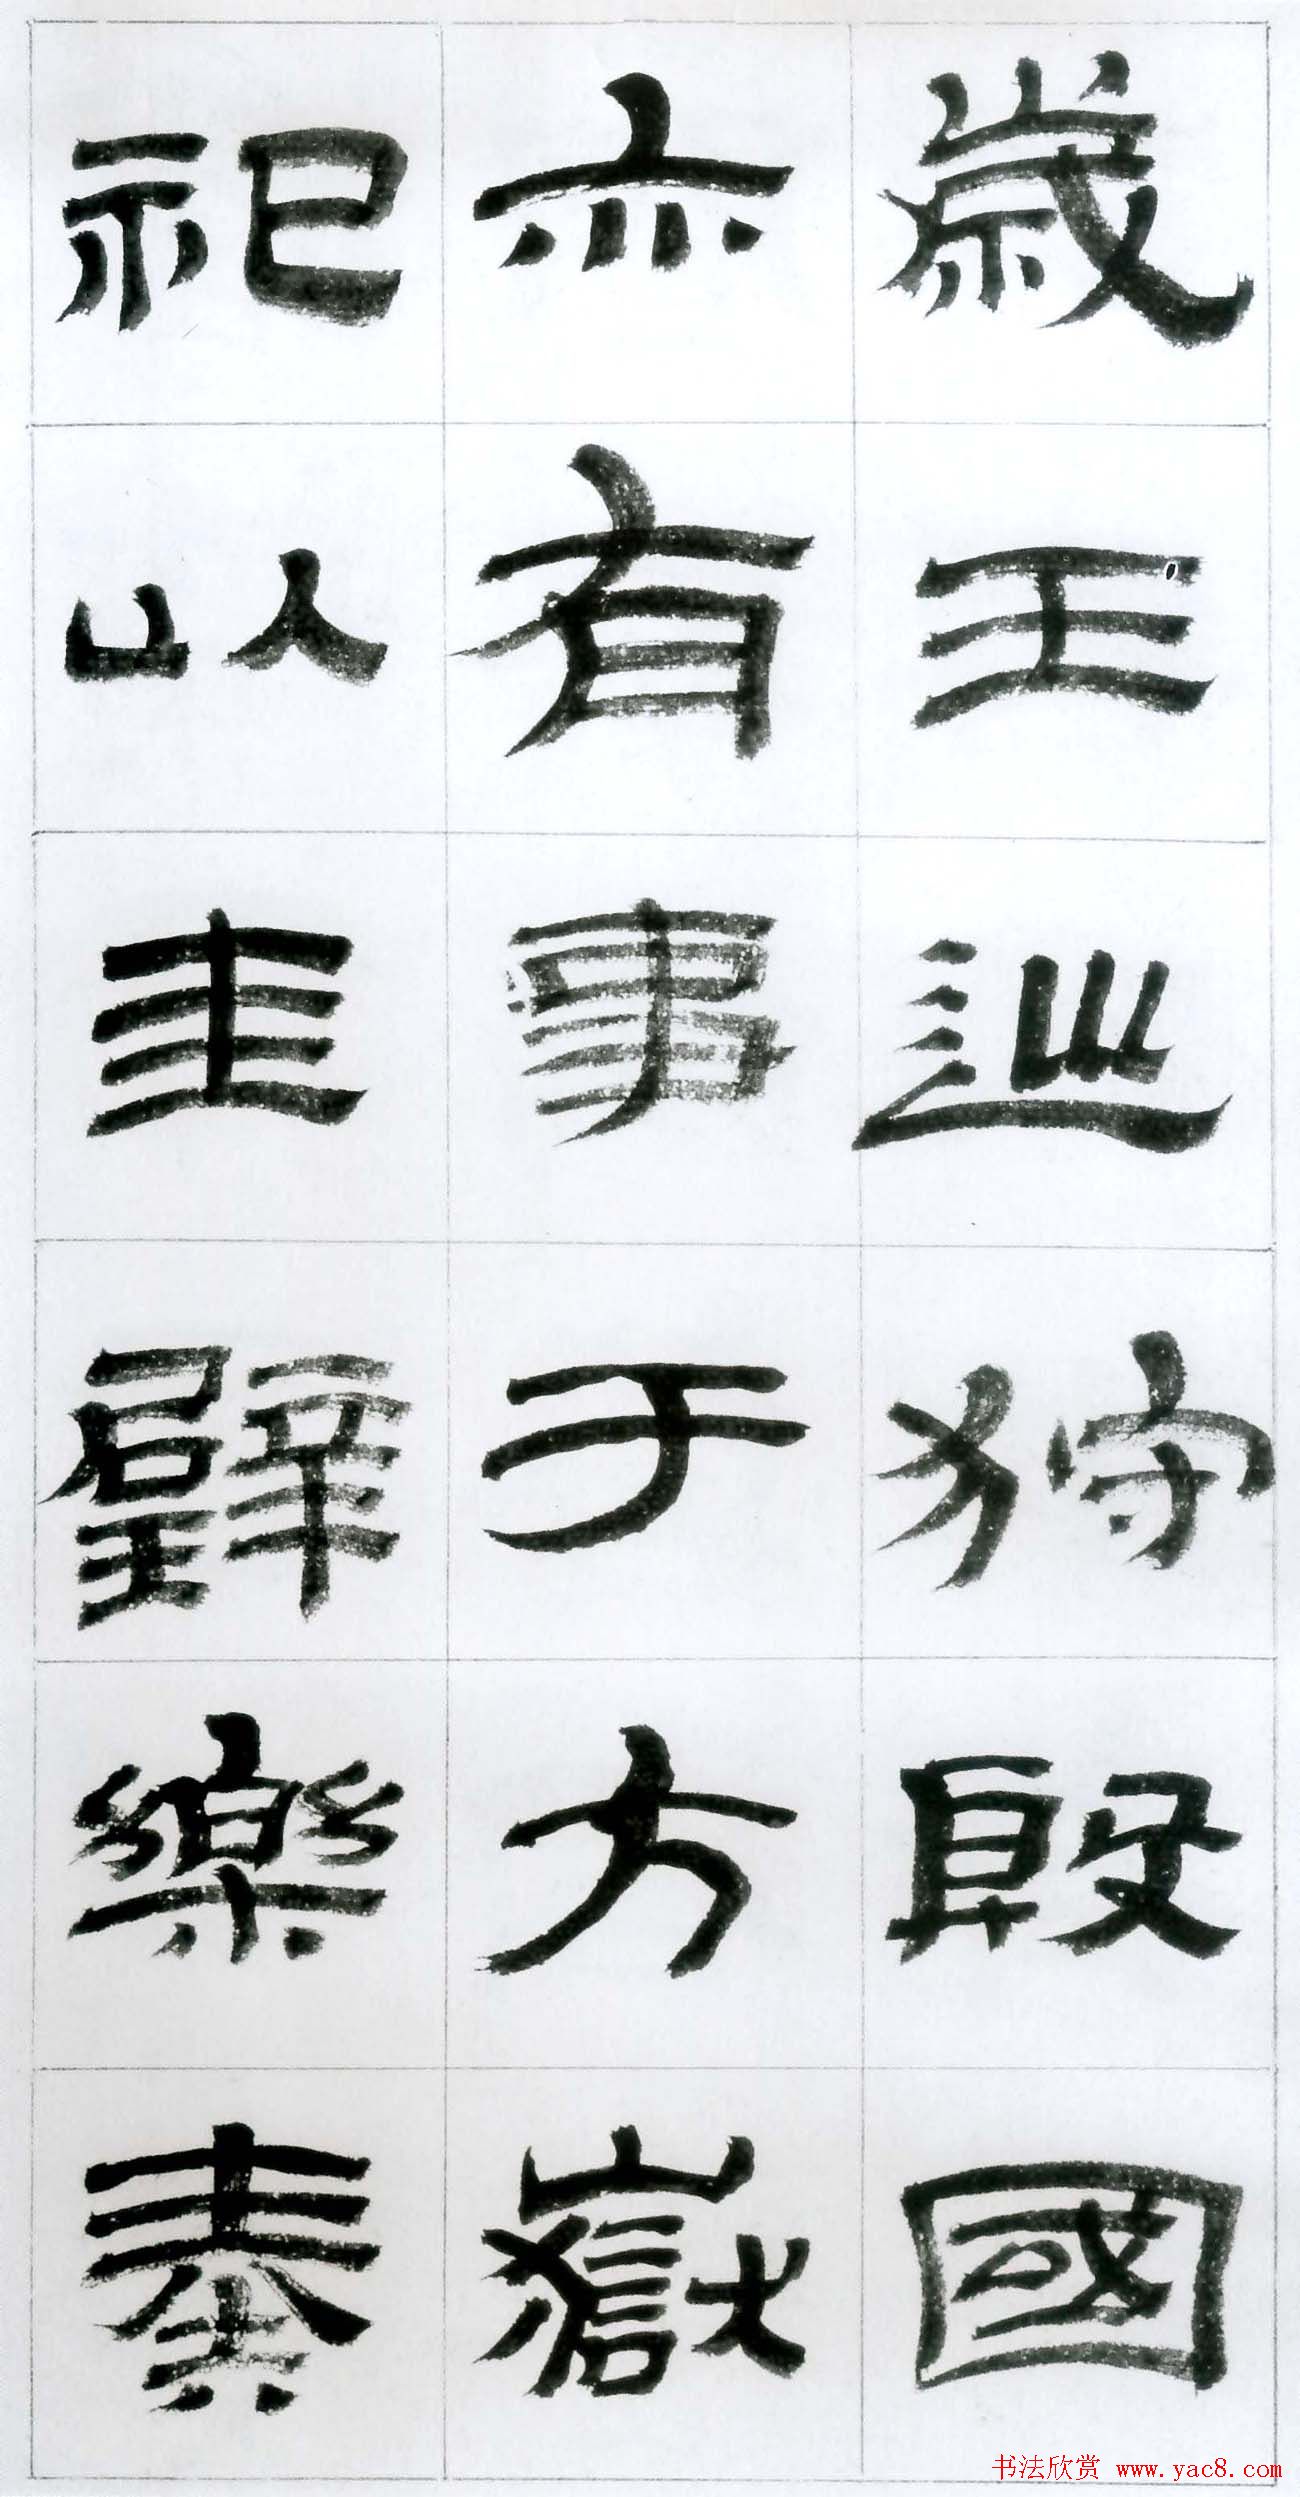 歲王巡狩殷國
亦有事于方嶽
祀以圭璧樂奏
书法欣赏 www.yac8.com